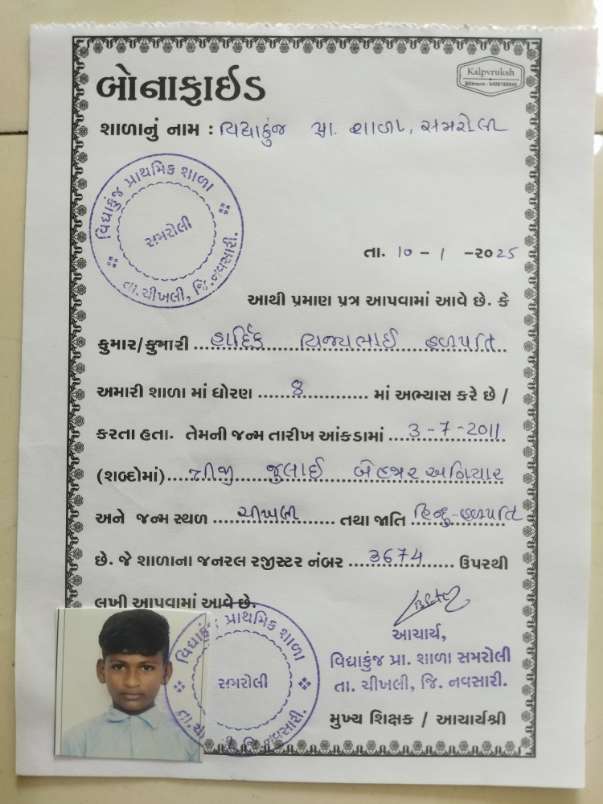 બોનાફાઈડ
Kalpvruksh
શાળાનું નામ : વિદ્યાકુંજ પ્રા. શાળા, સમરોલી
વિદ્યાકુંજ પ્રાથમિક શાળા
સમરોલી
તા.ચીખલી, જિ.નવસારી.
તા. ૧૦ - ૧ - ૨૦૨૫
આથી પ્રમાણ પત્ર આપવામાં આવે છે. કે
કુમાર/કુમારી હાર્દિક વિજયભાઈ હળપતિ
અમારી શાળા માં ધોરણ 8 માં અભ્યાસ કરે છે /
કરતા હતા. તેમની જન્મ તારીખ આંકડામાં 3-7-2011
(શબ્દોમાં) ત્રીજી જુલાઈ બેહજાર અગિયાર
અને જન્મ સ્થળ ચીખલી તથા જાતિ હિન્દુ-હળપતિ
છે. જે શાળાના જનરલ રજીસ્ટર નંબર 3674 ઉપરથી
લખી આપવામાં આવે છે.
આચાર્ય,
વિદ્યાકુંજ પ્રા. શાળા સમરોલી
તા. ચીખલી, જિ. નવસારી.
મુખ્ય શિક્ષક / આચાર્યશ્રી
વિદ્યાકુંજ પ્રાથમિક શાળા
સમરોલી
જિ.નવસારી.